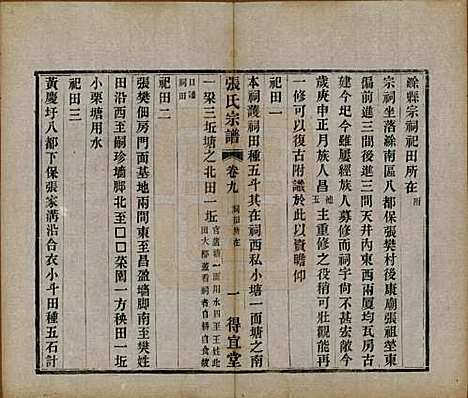 綜縣宗祠祀田所在附
宗祠坐落綜南區八都保張樊村後康廟張祖塋東
偏前進三間後進三間天井內東西兩厦均瓦房古
建今圮今雖屢經族人募修而祠宇尚不美觀於民
歲庚申正月族人昌德玉主重修之役稍可壯觀能再
一修可以復古附識於此以資瞻仰
祀田一
本祠護祠田種五斗其在祠西私小塘一面塘之南
張氏宗譜 卷九 祠田所在 一 得宜堂
一梁三坵塘之北田一坵
祠田
祀田二
張樊佃房門面基地兩間東至昌盈墻脚南至樊姓
田沿西至嗣珍墻脚北至口口菜園一方秧田一坵
小栗塘用水
祀田三
黃慶圩八都下保張家溝沿合衣小斗田種五石計